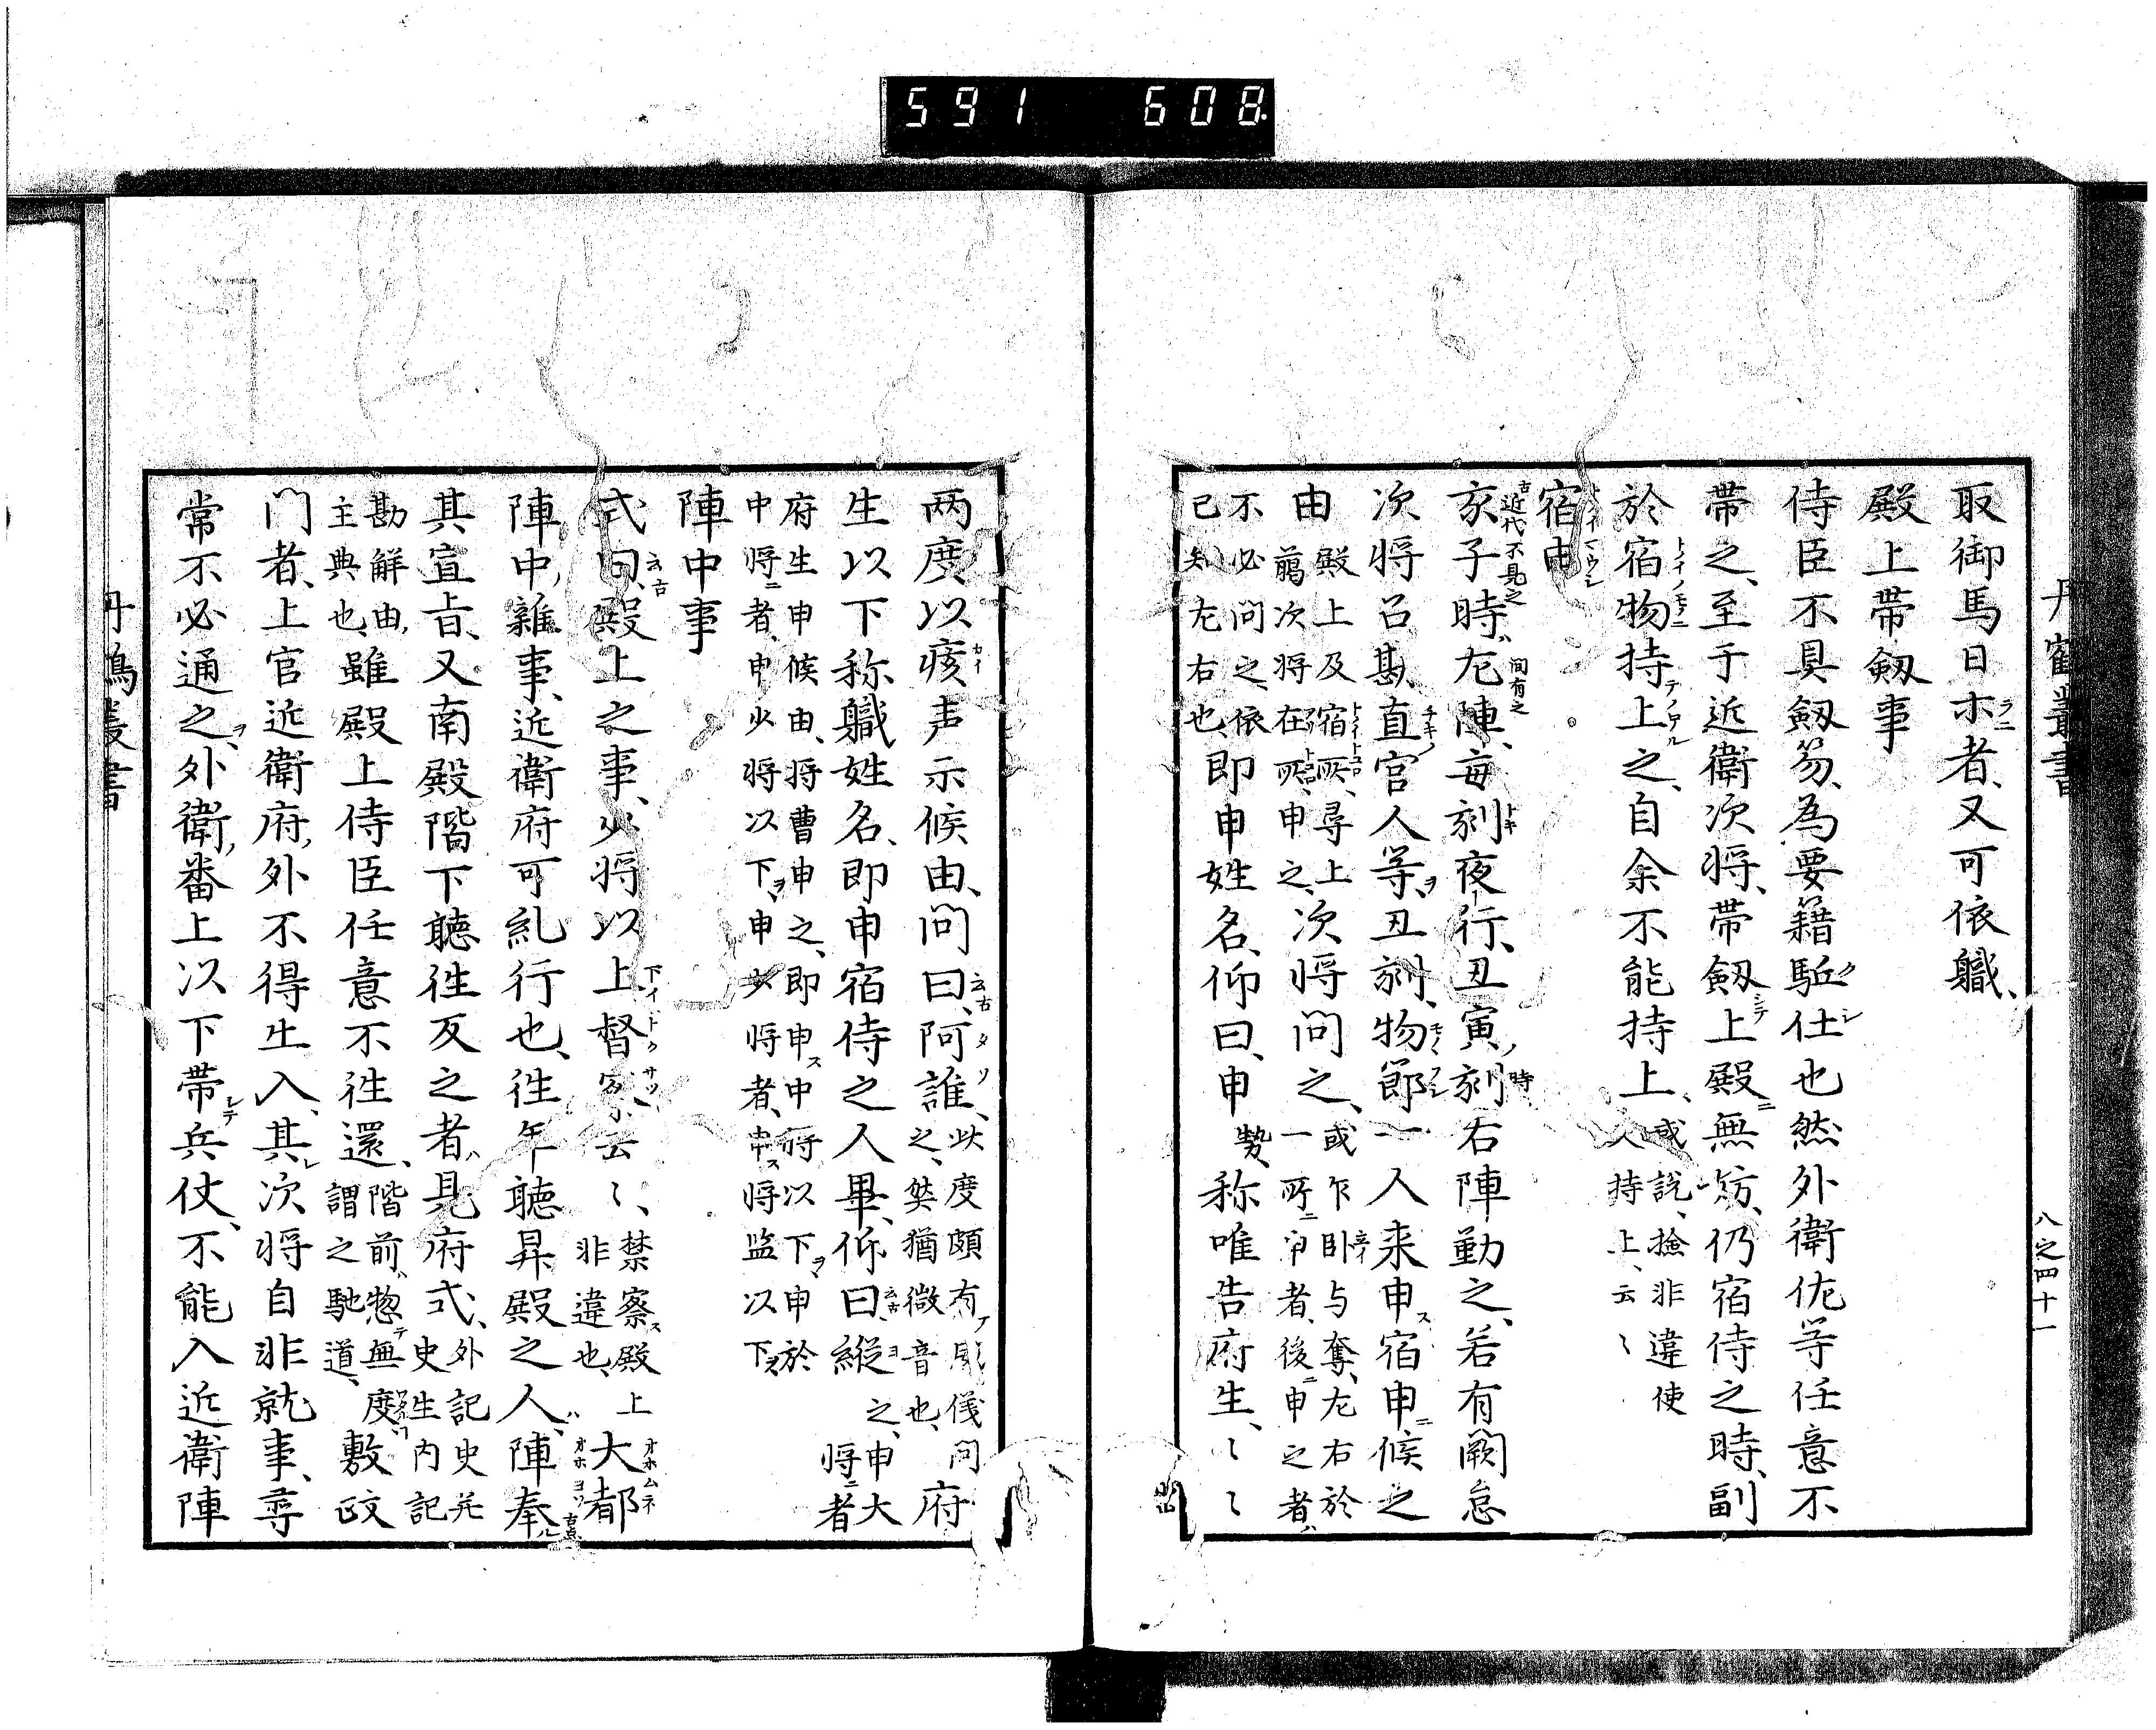 591 608
丹鶴叢書
八之四十一
取御馬日ホ者、又可依職、
殿上帯剱事
侍臣不具剱笏、為要籍駈仕也然外衛佐等任意不
帯之、至于近衛次将、帯剱上殿無妨、仍宿侍之時、副
於宿物持上之、自余不能持上、或説、撿非違使人持上、云〻
宿申
亥子時左陣、毎刻夜行、丑寅刻右陣勤之、若有闕怠
次将召勘、直官人等、丑刻、物節一人来申宿申候之
由殿上及宿所、尋上﨟次将在所、申之、次将問之、或乍臥与奪、左右於一所申者、後申之者
不必問之、依已知左右也、即申姓名、仰曰、申勢、称唯告府生、〻〻
両度以痎声示候由、問曰、阿誰、此度頗有威儀問之、猶微音也、府
生以下称職姓名、即申宿侍之人畢、仰曰、縦之、申大将者
府生申候由、将曹申之、即申中将以下、申於中将者、申少将以下、申少将者、申将監以下
陣中事
式曰、殿上之事、少将以上督察云〻、禁察殿上非違也、大都
陣中、雑事、近衛府可糺行也、往年聴昇殿之人、陣奉
其宣旨、又南殿階下聴往反之者、見府式、外記史并史生内記
勘解由、主典也、雖殿上侍臣任意不往還、階前惣無度謂之馳道、敷政
门者、上官近衛府、外不得出入、其次将自非就事、尋
常不必通之外衛、番上以下帯兵仗、不能入近衛陣
丹鶴叢書